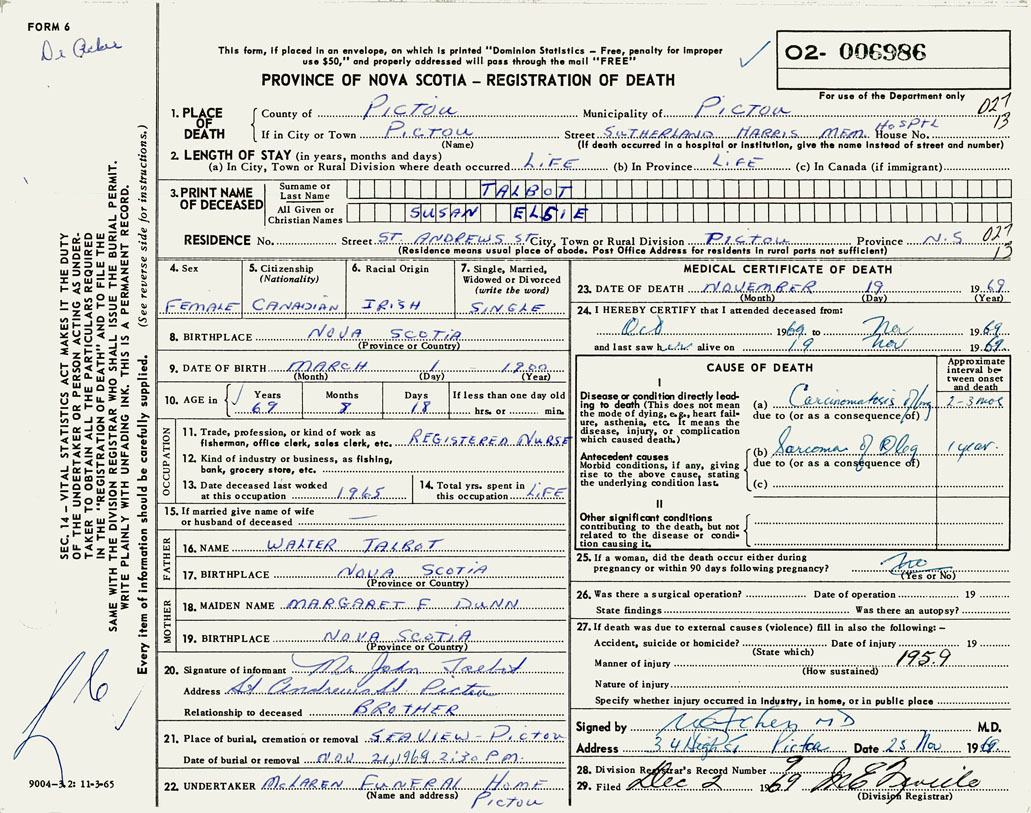 FORM 6
This form, if placed in an envelope, on which is printed "Dominion Statistics – Free, penalty for improper
use $50," and properly addressed will pass through the mail "FREE"
02- 006986
PROVINCE OF NOVA SCOTIA – REGISTRATION OF DEATH
For use of the Department only
027
13
1. PLACE OF DEATH
County of PICTOU Municipality of PICTOU
If in City or Town PICTOU Street SUTHERLAND HARRIS MEM. HOSPTL House No.
(Name) (If death occurred in a hospital or institution, give the name instead of street and number)
2. LENGTH OF STAY (in years, months and days)
(a) In City, Town or Rural Division where death occurred LIFE (b) In Province LIFE (c) In Canada (if immigrant)
3. PRINT NAME OF DECEASED
Surname or Last Name TALBOT
All Given or Christian Names SUSAN ELSIE
RESIDENCE No. Street ST. ANDREWS ST City, Town or Rural Division PICTOU Province N.S
027
13
(Residence means usual place of abode. Post Office Address for residents in rural parts not sufficient)
4. Sex
FEMALE
5. Citizenship
(Nationality)
CANADIAN
6. Racial Origin
IRISH
7. Single, Married,
Widowed or Divorced
(write the word)
SINGLE
8. BIRTHPLACE NOVA SCOTIA
(Province or Country)
9. DATE OF BIRTH MARCH 1
(Month) (Day) (Year)
10. AGE in
Years Months Days If less than one day old
69 8 18 hrs. or min.
OCCUPATION
11. Trade, profession, or kind of work as
fisherman, office clerk, sales clerk, etc. REGISTERED NURSE
12. Kind of industry or business, as fishing,
bank, grocery store, etc.
13. Date deceased last worked
at this occupation 1965
14. Total yrs. spent in
this occupation LIFE
15. If married give name of wife
or husband of deceased —
FATHER
16. NAME WALTER TALBOT
17. BIRTHPLACE NOVA SCOTIA
(Province or Country)
MOTHER
18. MAIDEN NAME MARGARET F DUNN
19. BIRTHPLACE NOVA SCOTIA
(Province or Country)
20. Signature of informant Mr John Talbot
Address St Andrews St Pictou
Relationship to deceased BROTHER
21. Place of burial, cremation or removal SEAVIEW - PICTOU
Date of burial or removal NOV 21, 1969 2:30 P.M.
22. UNDERTAKER McLAREN FUNERAL HOME
(Name and address) PICTOU
MEDICAL CERTIFICATE OF DEATH
23. DATE OF DEATH NOVEMBER 19 1969
(Month) (Day) (Year)
24. I HEREBY CERTIFY that I attended deceased from:
Oct 1969 to Nov 1969
and last saw her alive on 19 Nov 1969
CAUSE OF DEATH
Approximate
interval be-
tween onset
and death
I
Disease or condition directly lead-
ing to death (This does not mean
the mode of dying, e.g., heart fail-
ure, asthenia, etc. It means the
disease, injury, or complication
which caused death.)
(a) Carcinomatosis of lung 2-3 mos
due to (or as a consequence of)
Antecedent causes
Morbid conditions, if any, giving
rise to the above cause, stating
the underlying condition last.
(b) Sarcoma of leg 1 year
due to (or as a consequence of)
(c)
II
Other significant conditions
contributing to the death, but not
related to the disease or condi-
tion causing it.
25. If a woman, did the death occur either during
pregnancy or within 90 days following pregnancy? no
(Yes or No)
26. Was there a surgical operation? Date of operation 19
State findings Was there an autopsy?
27. If death was due to external causes (violence) fill in also the following: –
Accident, suicide or homicide? Date of injury 19
(State which)
Manner of injury
195.9
(How sustained)
Nature of injury
Specify whether injury occurred in Industry, in home, or in public place
Signed by MD M.D.
Address 34 High St Pictou Date 25 Nov 1969
28. Division Registrar's Record Number 9
29. Filed Dec 2 1969
(Division Registrar)
SEC. 14 – VITAL STATISTICS ACT MAKES IT THE DUTY
OF THE UNDERTAKER OR PERSON ACTING AS UNDER-
TAKER TO OBTAIN ALL THE PARTICULARS REQUIRED
IN THE "REGISTRATION OF DEATH" AND TO FILE THE
SAME WITH THE DIVISION REGISTRAR WHO SHALL ISSUE THE BURIAL PERMIT.
WRITE PLAINLY WITH UNFADING INK. THIS IS A PERMANENT RECORD.
Every item of information should be carefully supplied. (See reverse side for instructions.)
9004-3.2: 11-3-65